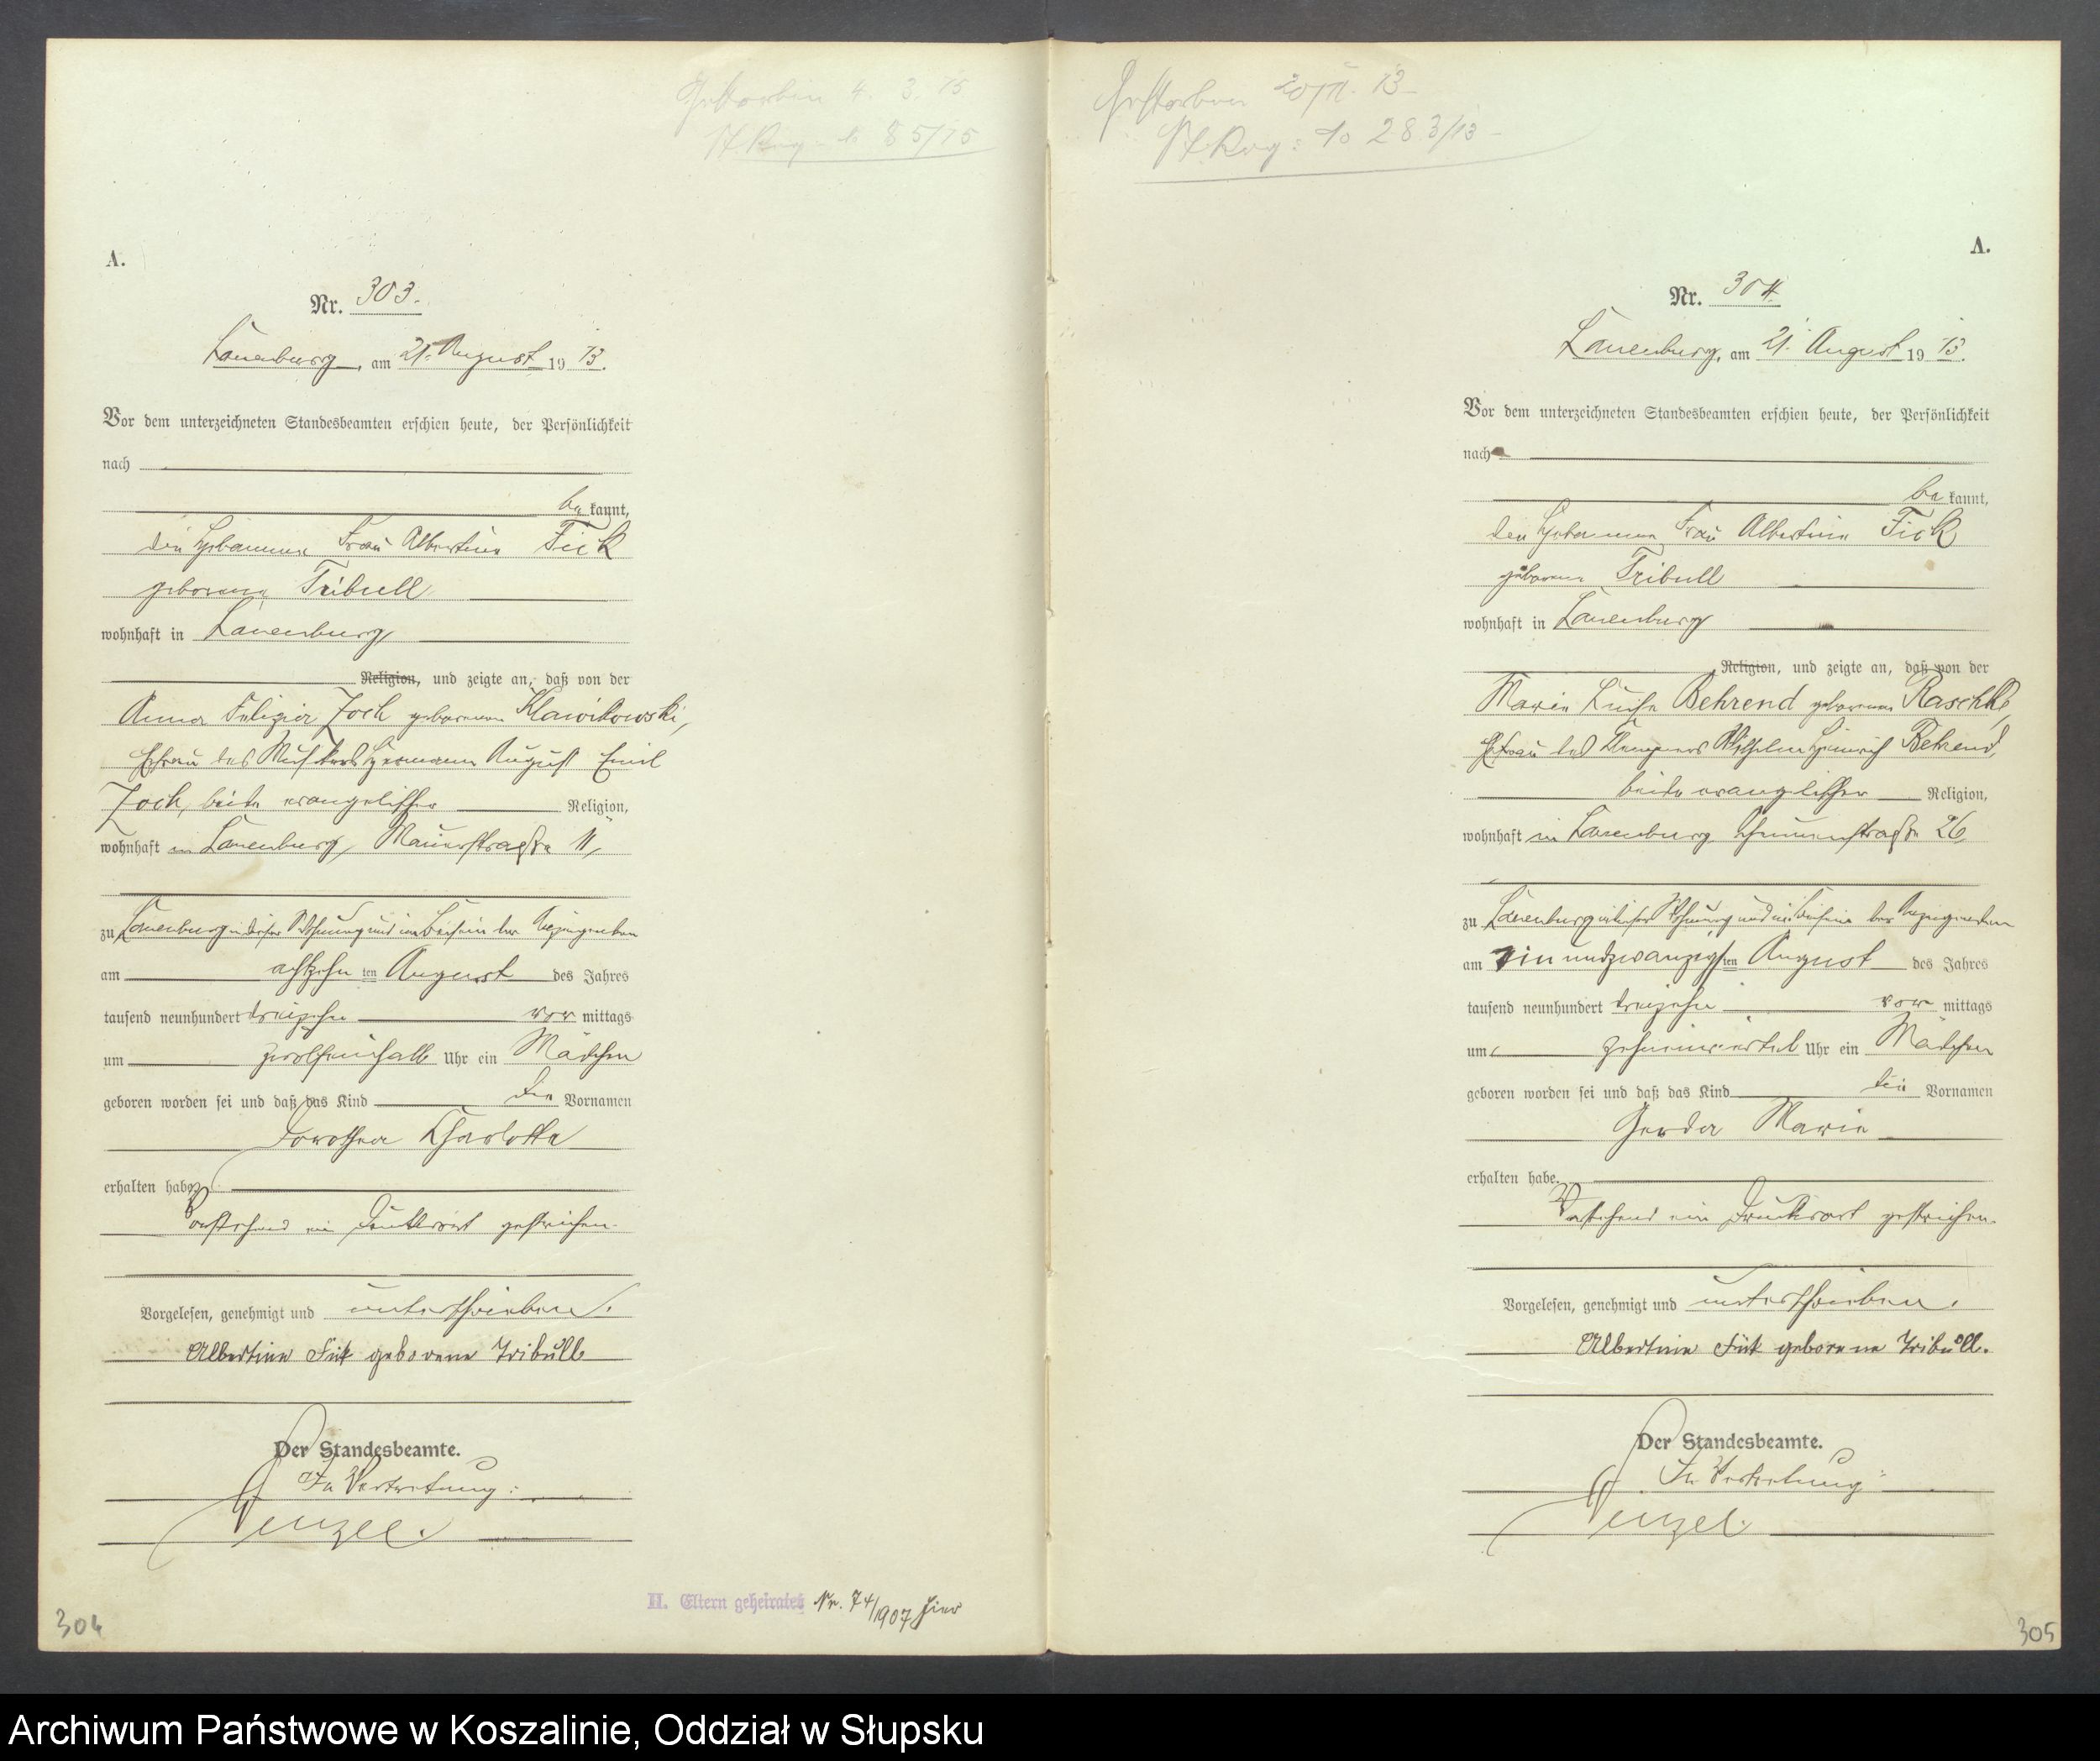 Gestorben 4. 3. 15
St. Reg: No 85/15
A.
Nr. 303.
Lauenburg, am 21. August 19 13.
Vor dem unterzeichneten Standesbeamten erschien heute, der Persönlichkeit
nach
be kannt,
die Hebamme Frau Albertine Fick
geborene Tribull
wohnhaft in Lauenburg
Religion, und zeigte an, daß von der
Anna Felizia Joch geborenen Klawikowski,
Ehefrau des Musikers Hermann August Emil
Joch, beide evangelischer Religion,
wohnhaft in Lauenburg, Mauerstraße 11,
zu Lauenburg in dieser Wohnung und im Beisein der Anzeigenden
am achtzehn ten August des Jahres
tausend neunhundert dreizehn vor mittags
um zwölfeinhalb Uhr ein Mädchen
geboren worden sei und daß das Kind die Vornamen
Dorothea Charlotte
erhalten habe.
Vorstehend ein Druckwort gestrichen.
Vorgelesen, genehmigt und unterschrieben.
Albertine Fick geborene Tribull
Der Standesbeamte.
In Vertretung:
Wenzel.
II. Eltern geheiratet Nr. 74/1907 hier
304
Gestorben 13
St. Reg: No 283/13
A.
Nr. 304.
Lauenburg, am 21. August 19 13.
Vor dem unterzeichneten Standesbeamten erschien heute, der Persönlichkeit
nach
be kannt,
die Hebamme Frau Albertine Fick
geborene Tribull
wohnhaft in Lauenburg
Religion, und zeigte an, daß von der
Marie Luise Behrend geborenen Raschke,
Ehefrau des Klempners Wilhelm Heinrich Behrend,
beide evangelischer Religion,
wohnhaft in Lauenburg, 26,
zu Lauenburg in dieser Wohnung und im Beisein der Anzeigenden
am einundzwanzigsten August des Jahres
tausend neunhundert dreizehn vor mittags
um zehneinviertel Uhr ein Mädchen
geboren worden sei und daß das Kind die Vornamen
Gerda Marie
erhalten habe.
Vorstehend ein Druckwort gestrichen.
Vorgelesen, genehmigt und unterschrieben.
Albertine Fick geborene Tribull.
Der Standesbeamte.
In Vertretung:
Wenzel.
305
Archiwum Państwowe w Koszalinie, Oddział w Słupsku